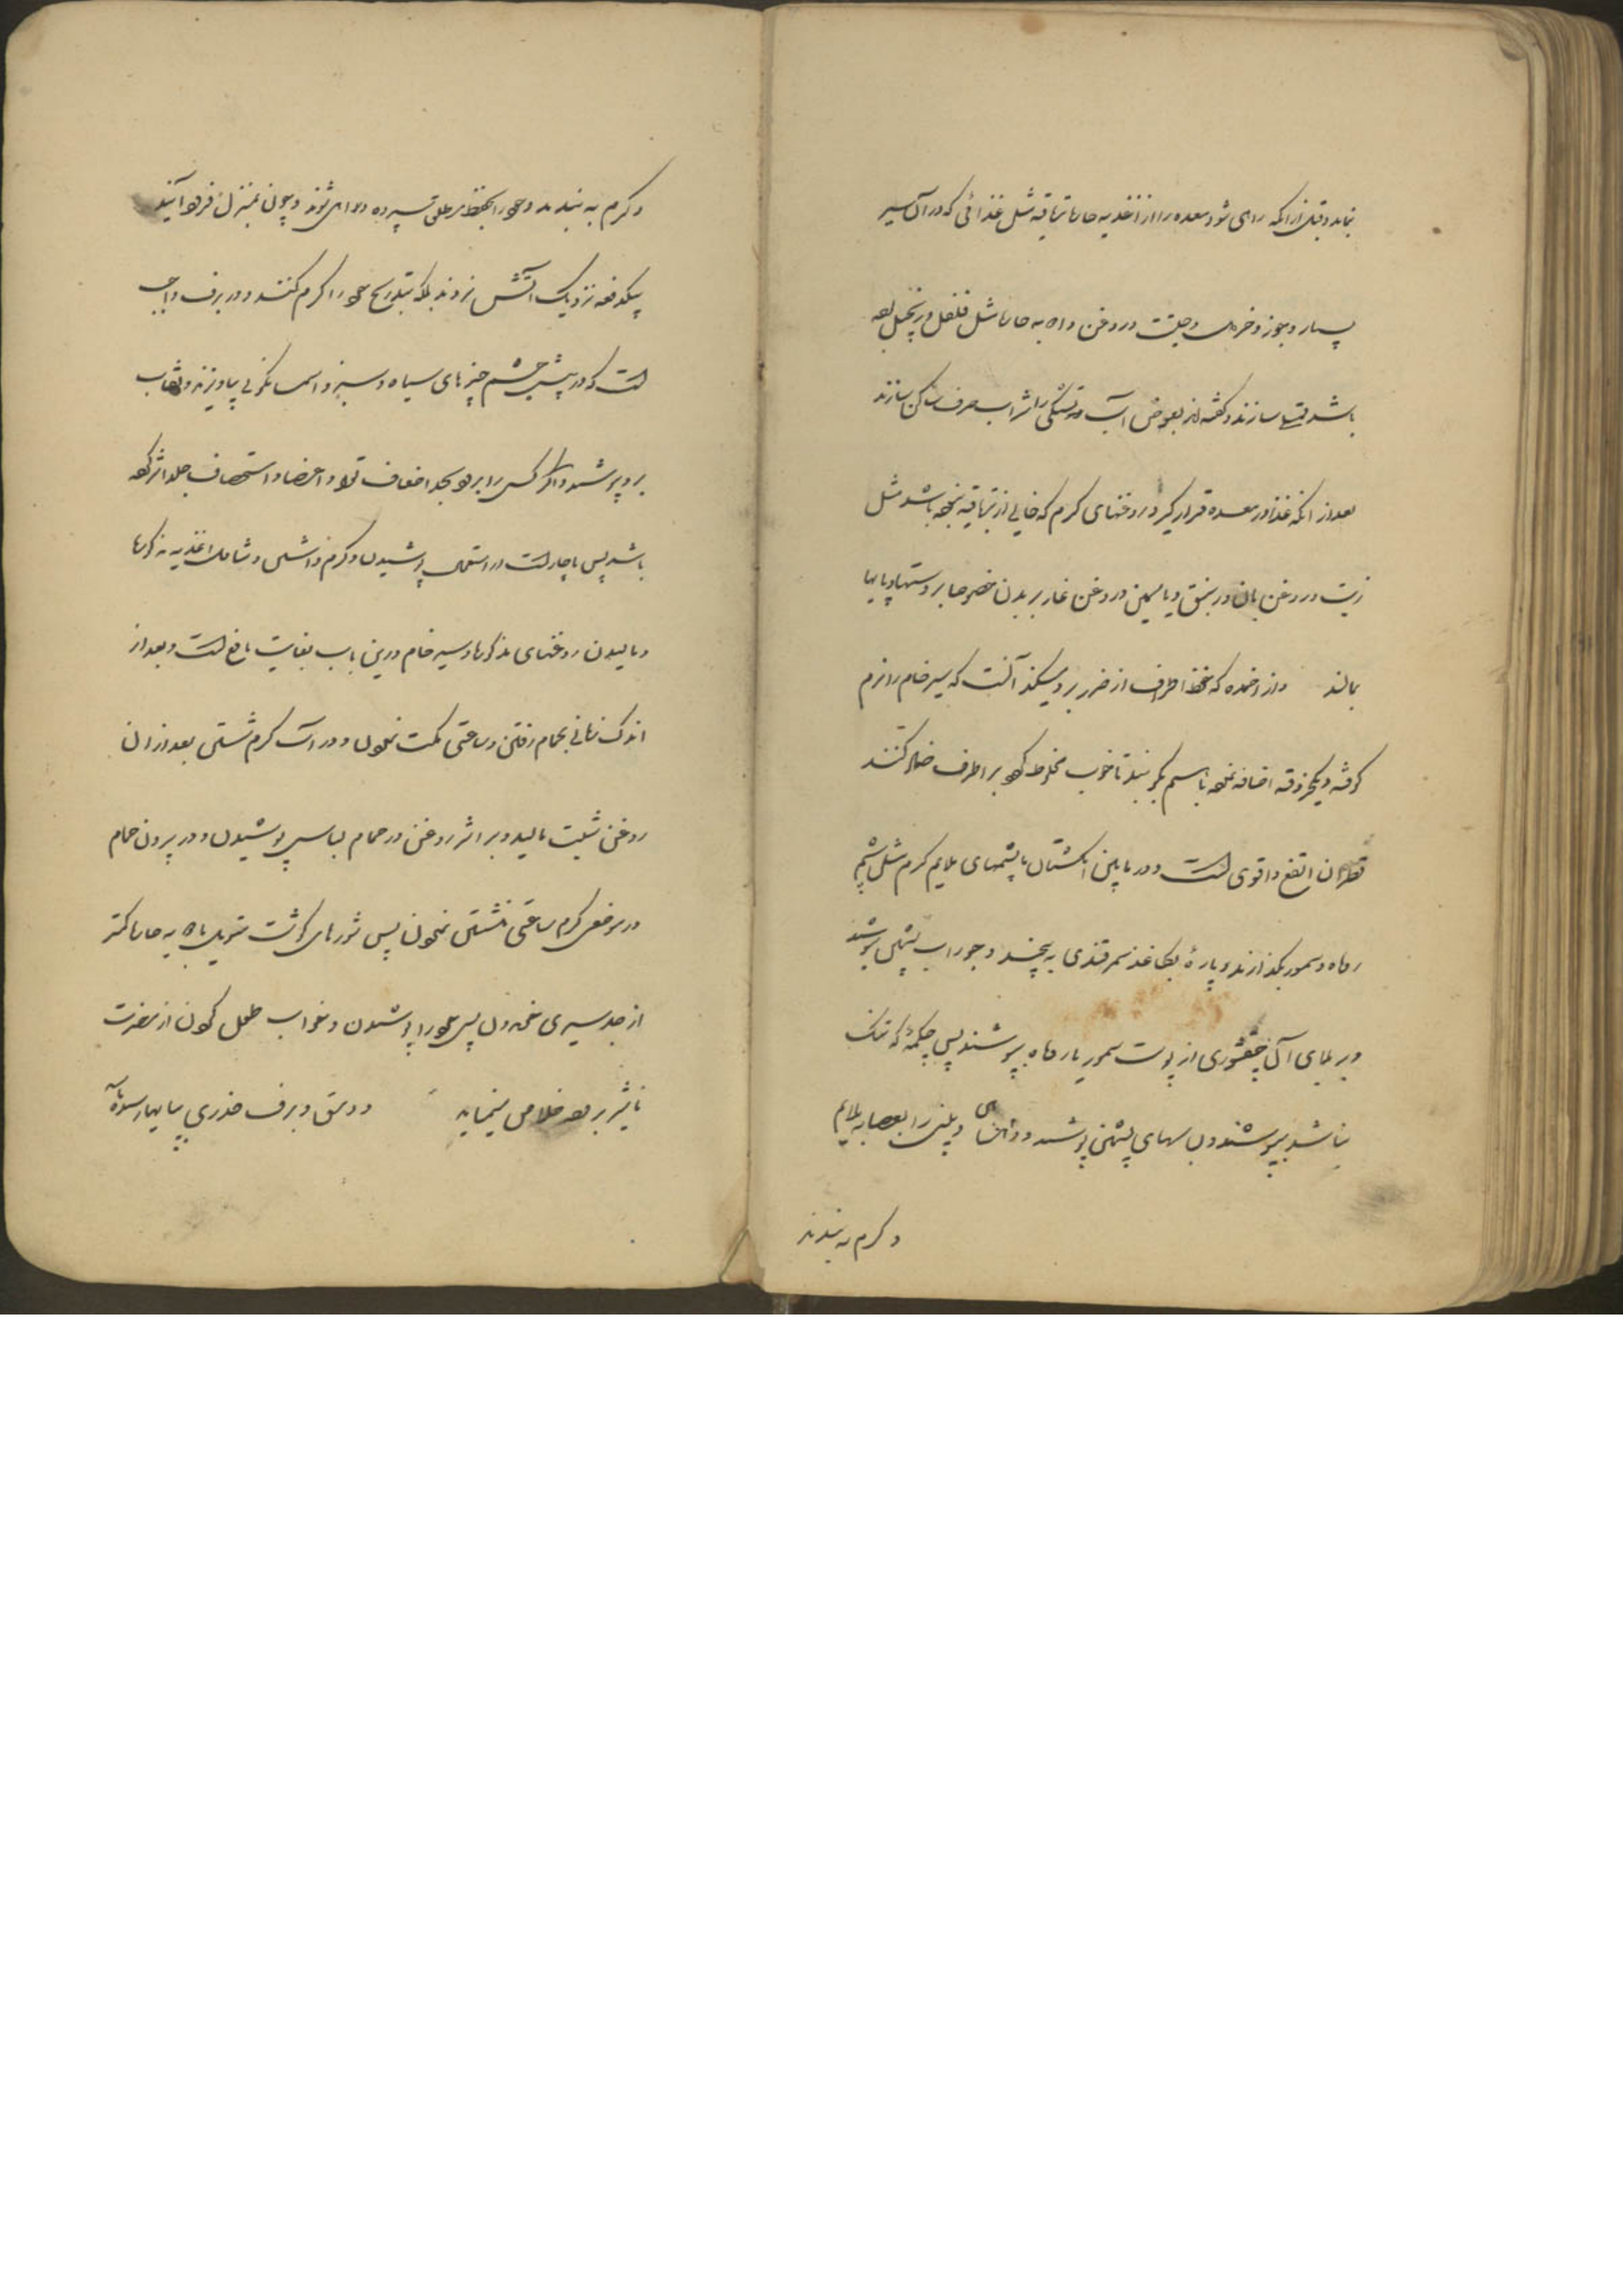 نماید و قبل از انکه راهی شود معده را از اغذیه حاره تریاقیه مثل غذائی که در ان سیر
بسیار و جوز و خردل و حلتیت و روغن و ادویه حاره مثل فلفل و زنجبیل بوده
باشد ممتلی سازند و گفته‌اند بعوض آب تشنگی را بشراب صرف ساکن سازند
بعد از انکه غذا در معده قرار گیرد روغنهای گرم که خالی از تریاقیه نبوده باشد مثل
زیت و روغن بان و زنبق و یاسمین و روغن غار بر بدن خصوصا بر دستها و پایها
بمالند و از ادویه که حفظ اطراف از ضرر برد میکند آنست که سیر خام را نرم
کوفته و یکجزو قنه اضافه نموده باسم بکوبند تا خوب مخلوط گردد بر اطراف ضماد کنند
قطران انفع و اقوی است و در مابین انگشتان پا پشمهای ملایم گرم مثل پشم
روباه و سمور بگذارند و پارهٔ بکاغذ سمرقندی به پیچند و جوراب پشمی بپوشند
و بر بالای آن چقشوری از پوست سمور یا روباه بپوشند پس چکمهٔ که تنک
نباشد بپوشند و لباسهای پشمین پوشند و دهان و بینی را بعصابه ملایم
و گرم به بندند
و گرم به بندند و خود را بحفظ سپرده راهی شوند و چون بمنزل فرود آیند
یکدفعه نزدیک آتش نروند بلکه بتدریج خود را گرم کنند و در برف واجب
است که در پیش چشم چیزهای سیاه و سبز و اسمانگونی بیاویزند و نقاب
برو پوشند و اگر کسی را برد بحد اضعاف قوا و اعضا و استحصاف جلد اثر کرده
باشد پس ناچار است در استعمال پوشیدن و گرم داشتن و تناول اغذیه مذکوره
و مالیدن روغنهای مذکوره و سیر خام درین باب بغایت نافع است و بعد از
اندک زمانی بحمام رفتن و ساعتی مکث نمودن و در آب گرم نشستن بعد از ان
روغن شبت مالیده و بر اثر روغن در حمام لباس پوشیدن و در بیرون حمام
در موضعی گرم ساعتی نشستن نمودن پس شوربای گوشت بادویه حاره کمتر
از حد سیری خوردن پس خود را پوشیدن و بخواب طویل کردن از مضرت
تاثیر برد خلاصی مینماید و دمق و برف خدری بپایها رسد